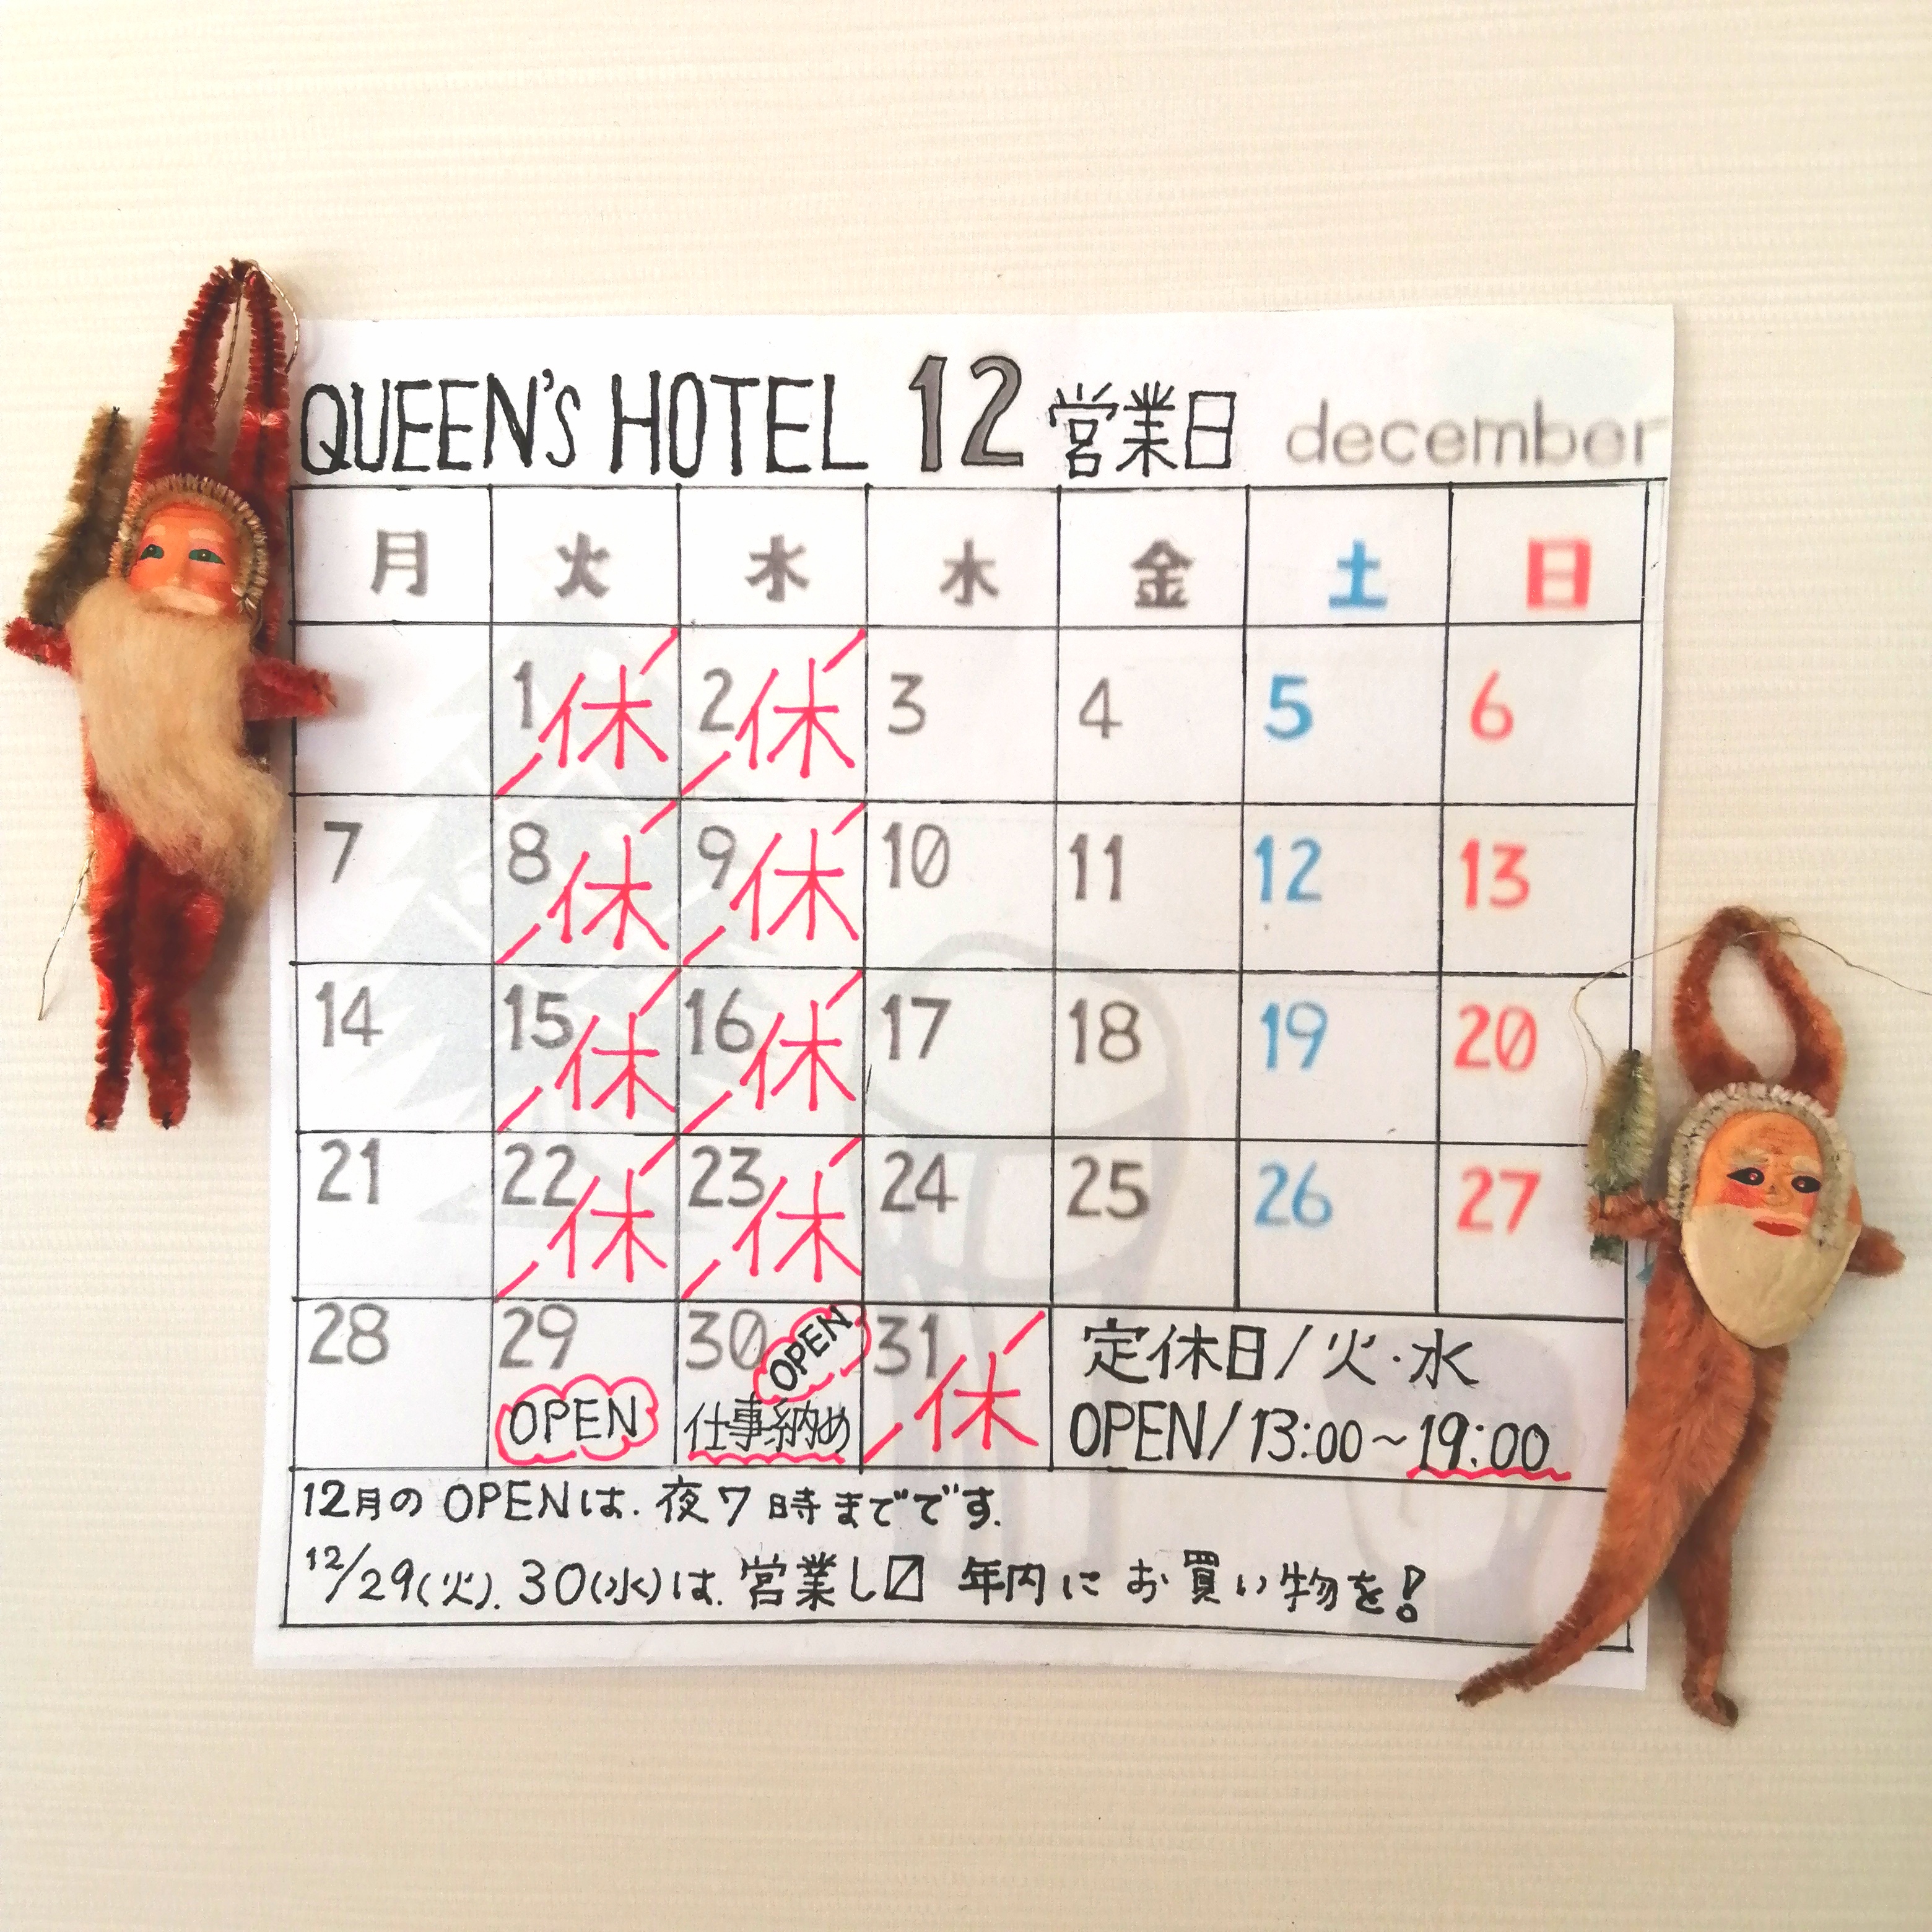 QUEEN'S HOTEL 12 営業日 december
月 火 水 木 金 土 日
1 休 2 休 3 4 5 6
7 8 休 9 休 10 11 12 13
14 15 休 16 休 17 18 19 20
21 22 休 23 休 24 25 26 27
28 29 OPEN 30 OPEN 仕事納め 31 休
定休日/火・水
OPEN/13:00~19:00
12月のOPENは.夜7時までです.
12/29(火).30(水)は.営業し〼 年内にお買い物を!